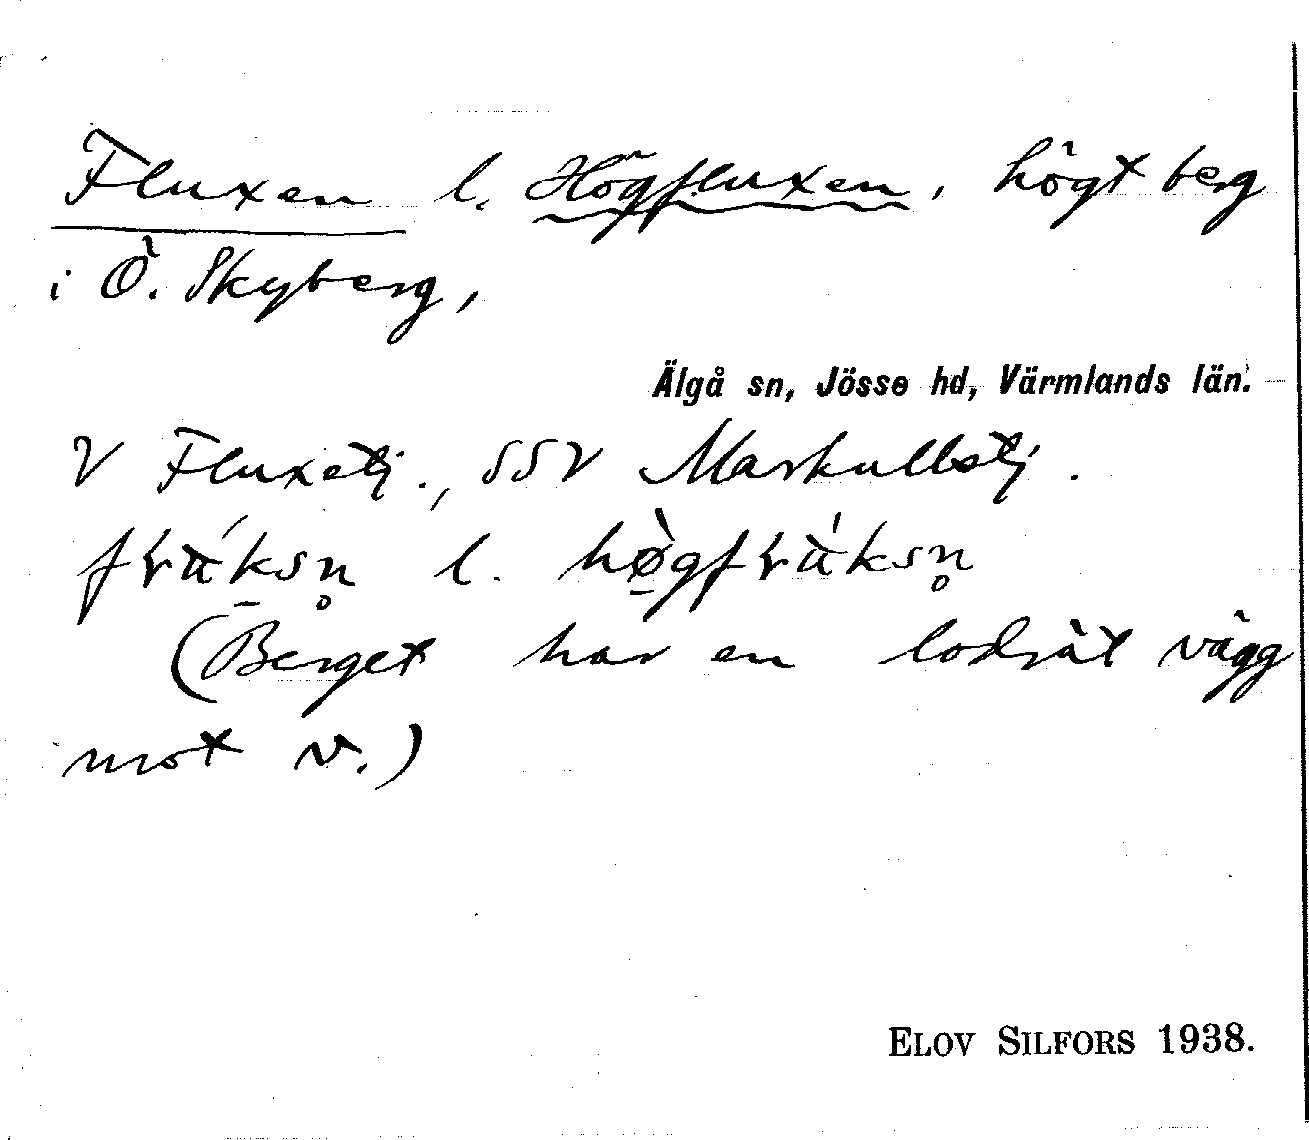 Fluxen l. Högfluxen, högt berg
i Ö. Skyberg,
Älgå sn, Jösse hd, Värmlands län.
V Fluxetj., SSV Markullstj.
l.
(Berget har en lodrät vägg
mot v.)
ELOV SILFORS 1938.